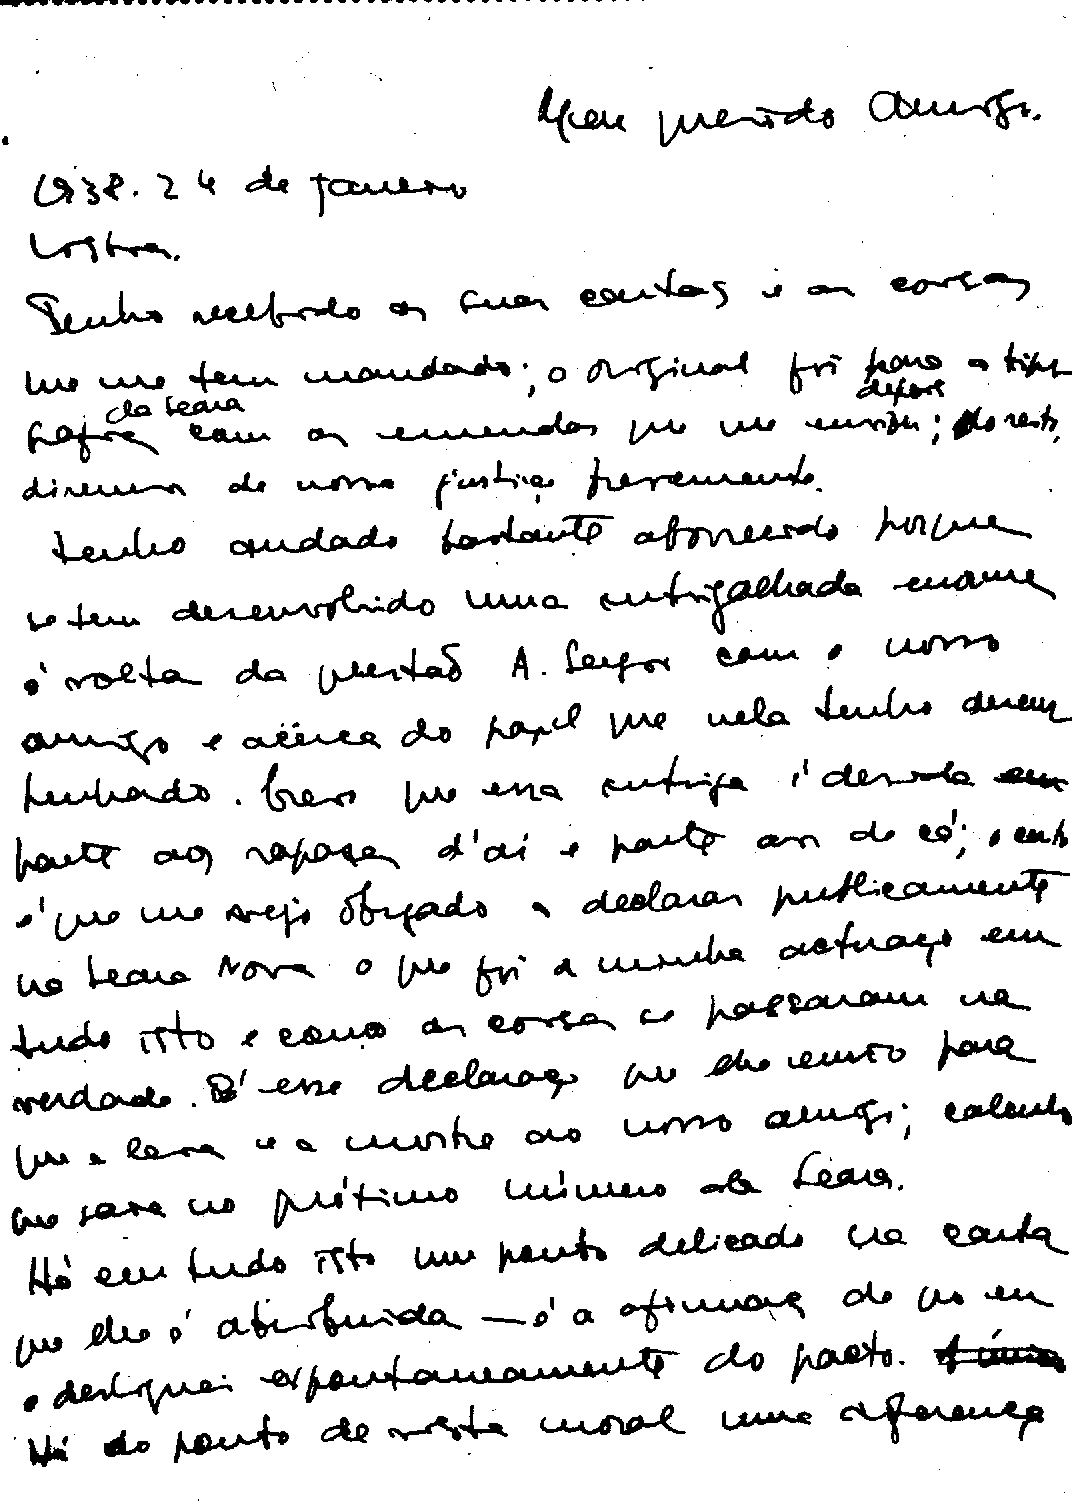 Meu querido Amigo.
1938. 24 de Janeiro
Lisboa.
Tenho recebido as suas cartas e as coisas
que me tem mandado; o original foi para a tipo-
da Seara depois
grafia com as emendas que me enviou; do resto,
diremos de nossa justiça brevemente.
Tenho andado bastante aborrecido porque
se tem desenvolvido uma intrigalhada enorme
á volta da questão A. Sergio com o nosso
amigo e acêrca do papel que nela tenho desem
penhado. Creio que essa intriga é devida em
parte aos rapazes d'aí e parte aos de cá; o certo
é que me vejo obrigado a declarar publicamente
na Seara Nova o que foi a minha actuação em
tudo isto e como as coisas se passaram na
verdade. É essa declaração que lhe envio para
que a leia e a mostre ao nosso amigo; calculo
que saia no próximo número da Seara.
Há em tudo isto um ponto delicado na carta
que lhe é atribuida — é a afirmação de que eu
o desliguei espontaneamente do pacto.
Há do ponto de vista moral uma diferença